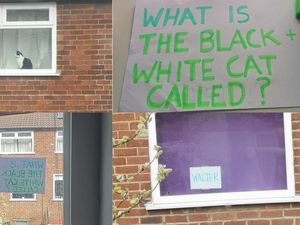 WHAT IS
THE BLACK +
WHITE CAT
CALLED?
WHAT IS
THE BLACK
WHITE CAT
CALLED
WALTER